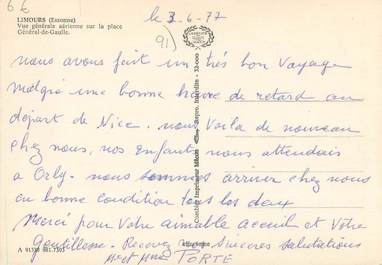 6€
LIMOURS (Essonne)
Vue générale aérienne sur la place
Général-de-Gaulle.
le 3-6-77
91)
nous avons fait un très bon voyage
malgré une bonne heure de retard au
départ de Nice. nous voila de nouveau
chez nous, nos enfants nous attendais
a Orly. nous sommes arriver chez nous
en bonne condition tous les deux
Merci pour votre aimable acceuil et votre
gentillesse. Recevez nos Sincères salutations
Mr et Mme TORTE
A 91338 001 7503